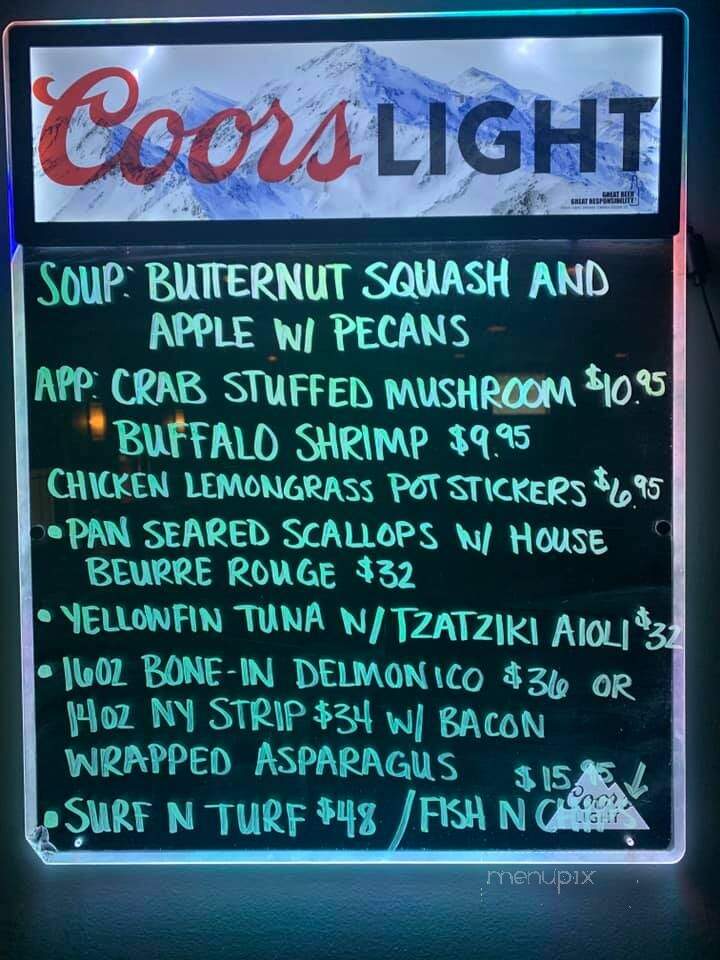 Coors LIGHT
GREAT BEER
GREAT RESPONSIBILITY
SOUP: BUTTERNUT SQUASH AND
APPLE W/ PECANS
APP: CRAB STUFFED MUSHROOM $10.95
BUFFALO SHRIMP $9.95
CHICKEN LEMONGRASS POT STICKERS $6.95
• PAN SEARED SCALLOPS W/ HOUSE
BEURRE ROUGE $32
• YELLOWFIN TUNA W/ TZATZIKI AIOLI $32
• 16OZ BONE-IN DELMONICO $36 OR
14OZ NY STRIP $34 W/ BACON
WRAPPED ASPARAGUS
$15.95 ↓
• SURF N TURF $48 / FISH N
Coors
LIGHT
menupix